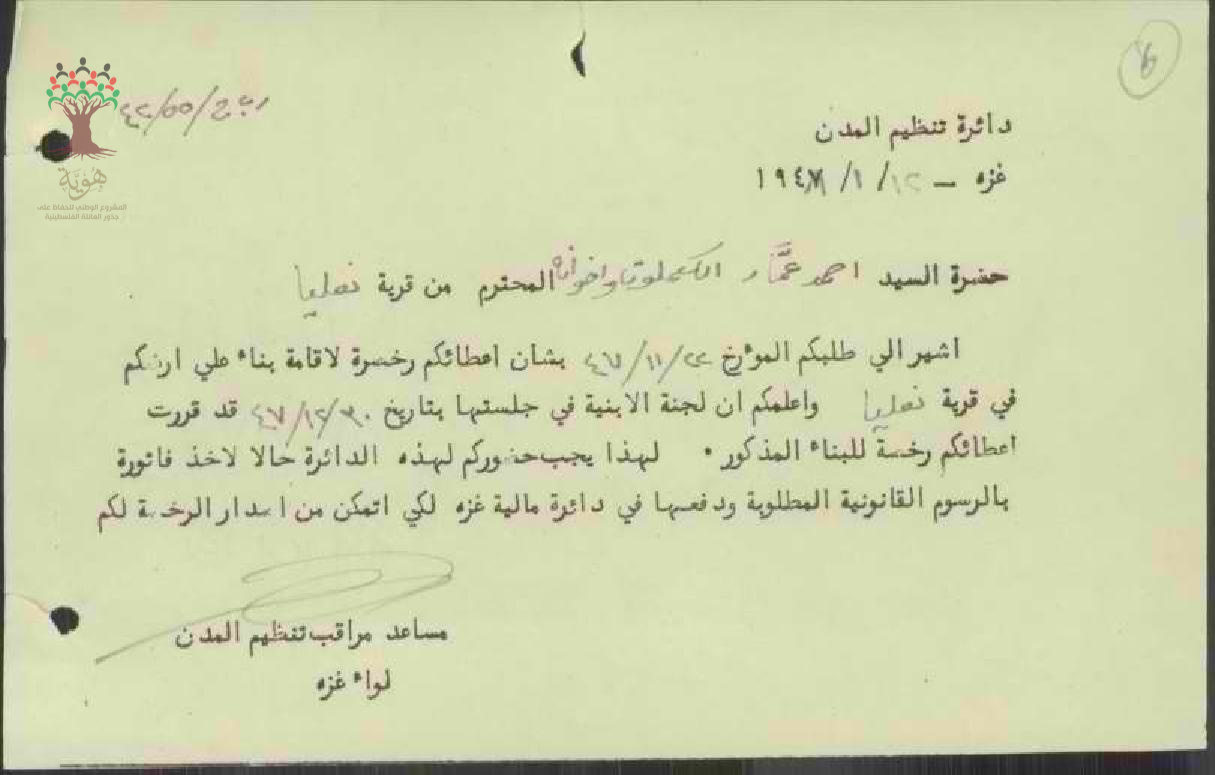 ٤٢/٥٥/
هوية
المشروع الوطني للحفاظ على
جذور العائلة الفلسطينية
دائرة تنظيم المدن
غزه — ١٢/ ١/ ١٩٤٨
حضرة السيد احمد عمَّار الكحلوت واخوانه المحترم من قرية نعليا
اشير الي طلبكم الموءرخ ٢٢/ ١١/ ٤٧ بشأن اعطائكم رخصة لاقامة بناء علي ارضكم
في قرية نعليا واعلمكم ان لجنة الابنية في جلستها بتاريخ ٣٠/ ١٢/ ٤٧ قد قررت
اعطائكم رخصة للبناء المذكور . لهذا يجب حضوركم لهذه الدائرة حالا لاخذ فاتورة
بالرسوم القانونية المطلوبة ودفعها في دائرة مالية غزه لكي اتمكن من اصدار الرخصة لكم
مساعد مراقب تنظيم المدن
لواء غزه